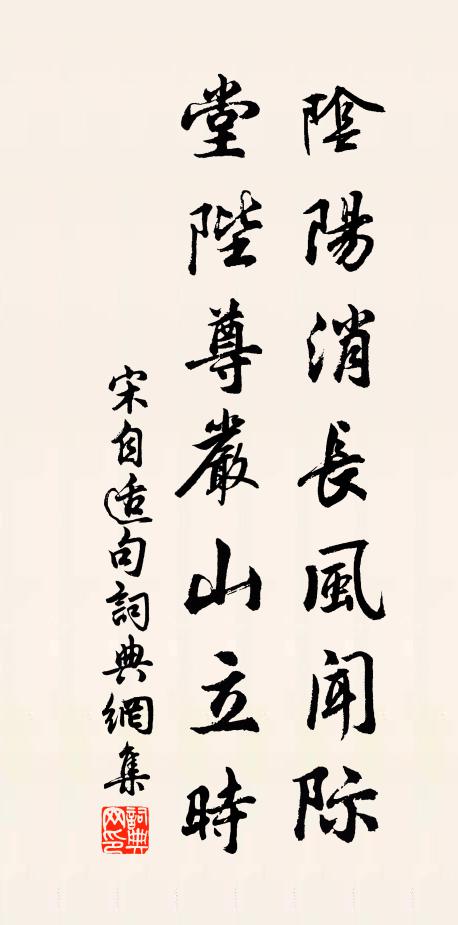 陰陽消長風聞際
堂陛尊嚴山立時
宋自适句詞典網集
詞典网印